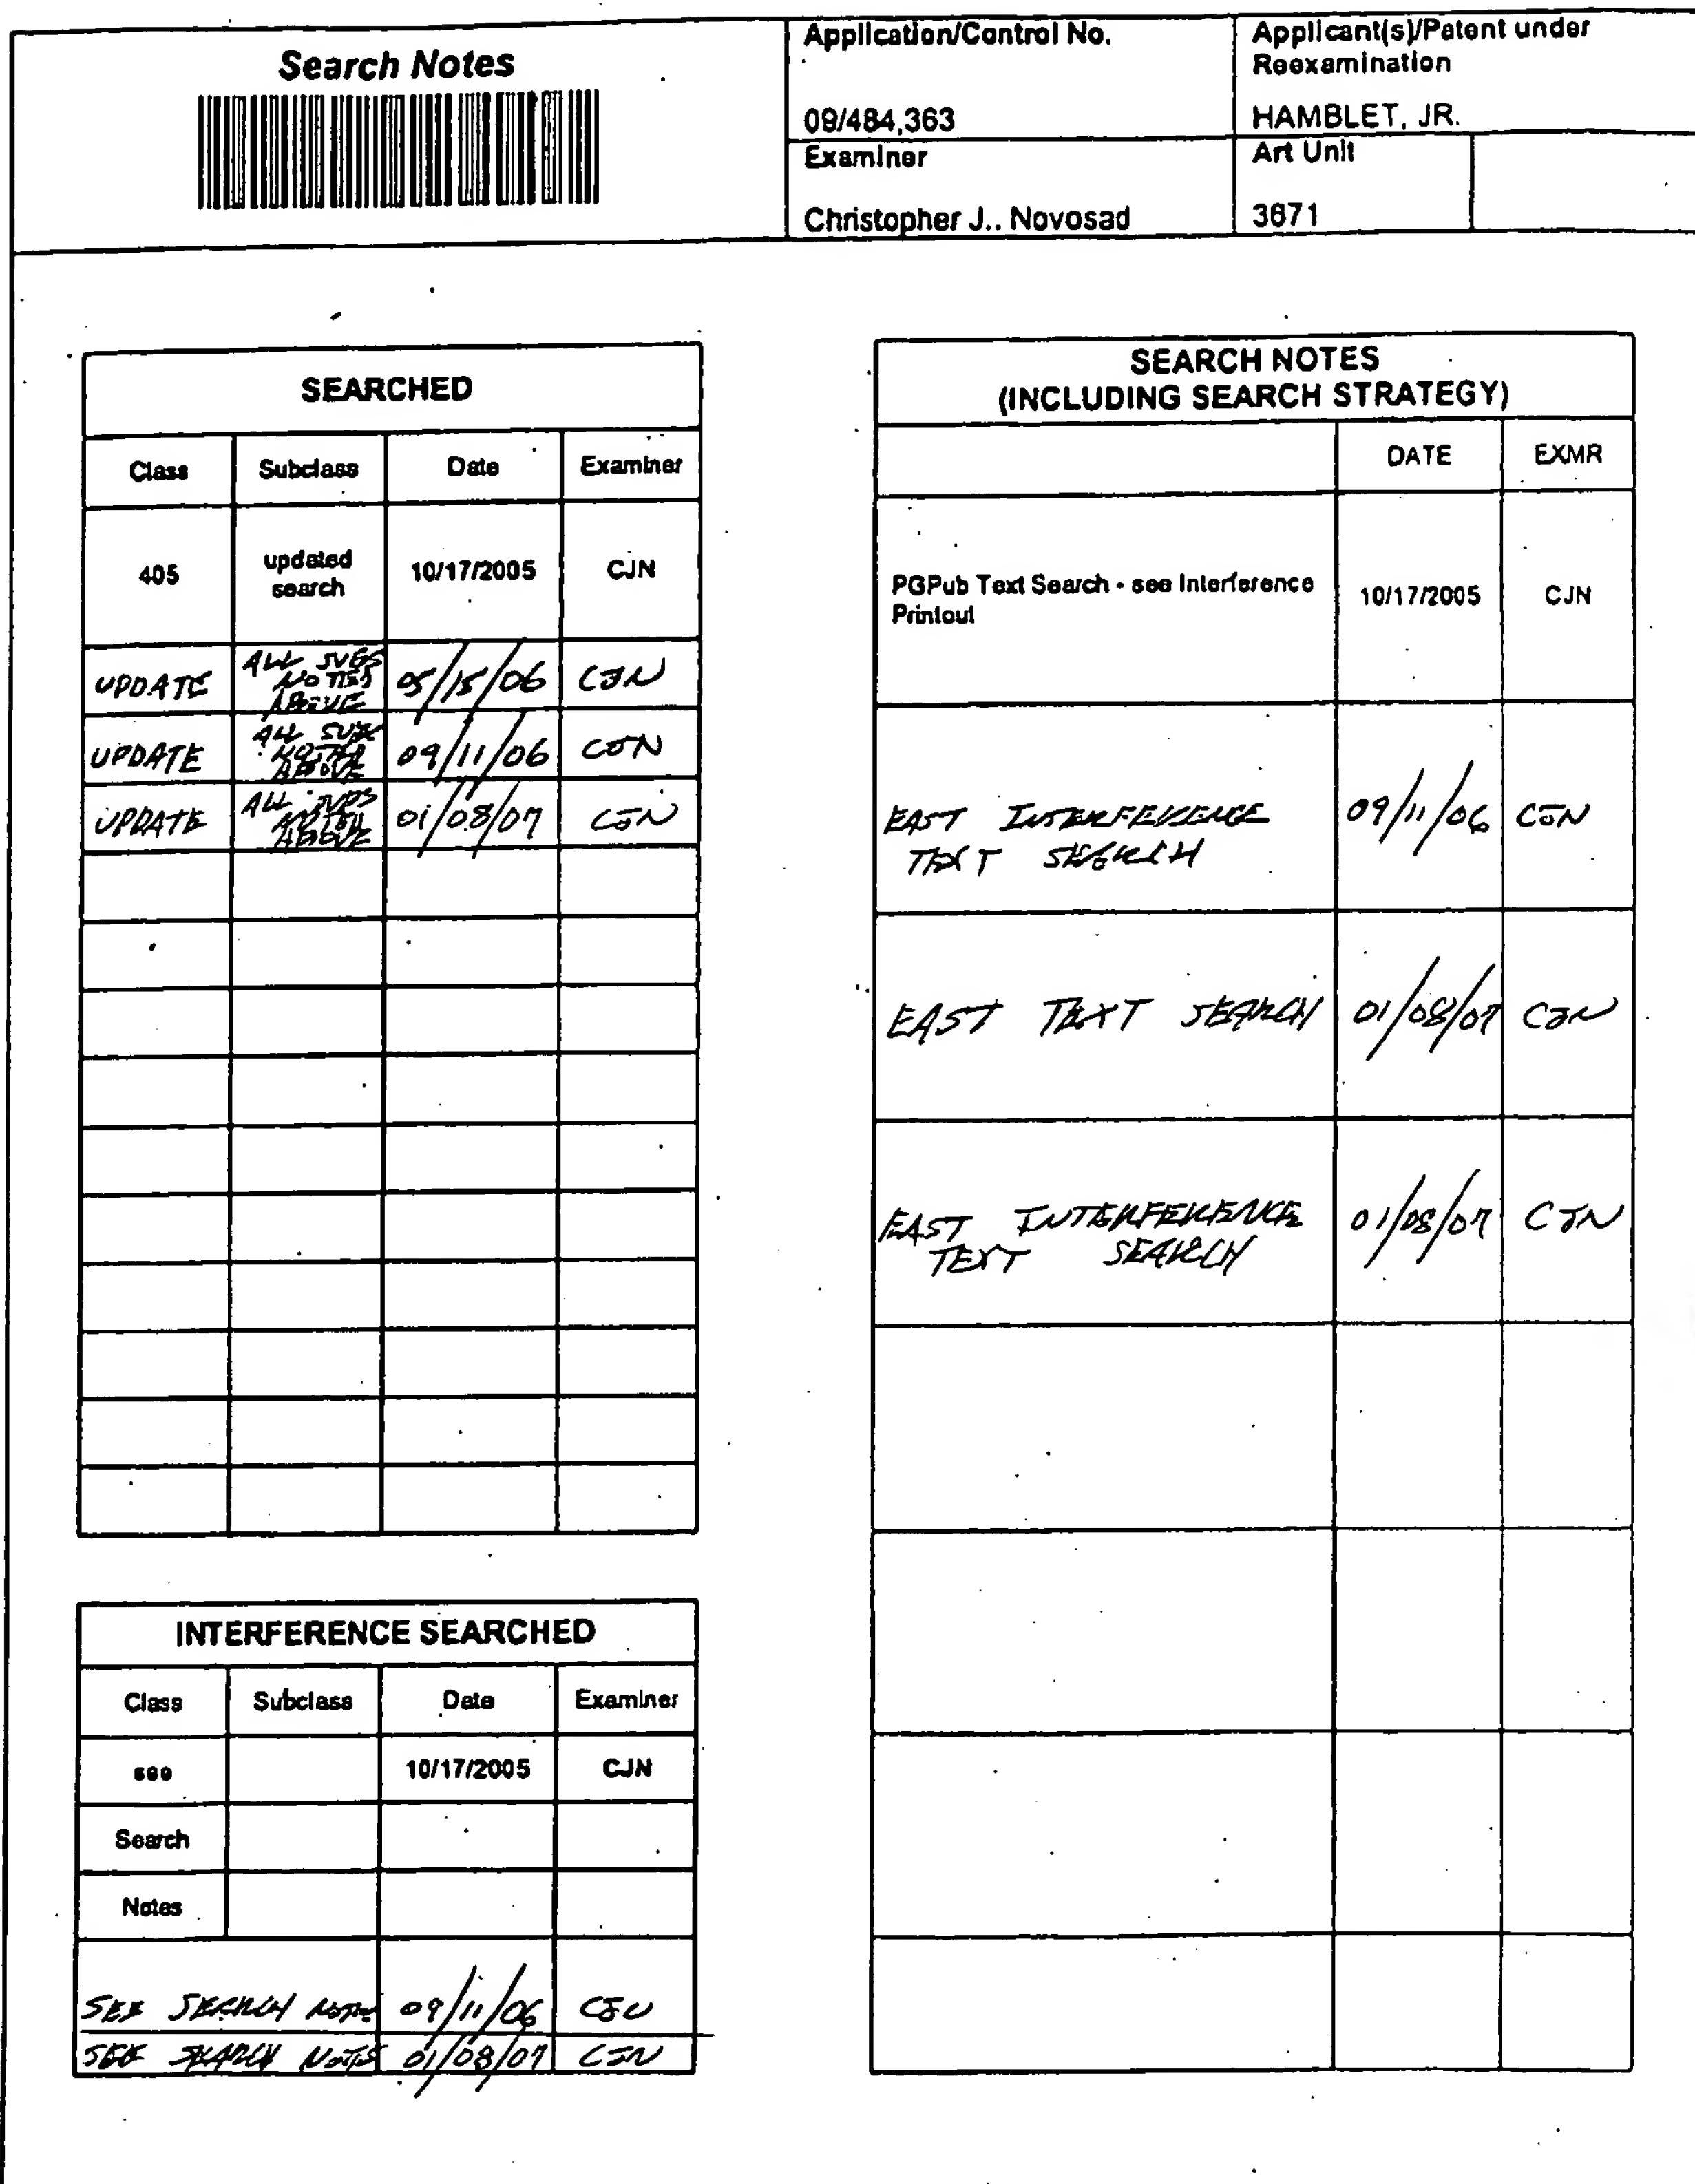 Search Notes
Application/Control No.
09/484,363
Applicant(s)/Patent under
Reexamination
HAMBLET, JR.
Examiner
Christopher J.. Novosad
Art Unit
3671
SEARCHED
Class Subclass Date Examiner
405 updated search 10/17/2005 CJN
UPDATE ALL SUBS NOTED ABOVE 05/15/06 CJN
UPDATE ALL SUBS NOTED ABOVE 09/11/06 CJN
UPDATE ALL SUBS NOTED ABOVE 01/08/07 CJN
INTERFERENCE SEARCHED
Class Subclass Date Examiner
see 10/17/2005 CJN
Search
Notes
SEE SEARCH NOTES 09/11/06 CJN
SEE SEARCH NOTES 01/08/07 CJN
SEARCH NOTES
(INCLUDING SEARCH STRATEGY)
DATE EXMR
PGPub Text Search - see Interference
Printout 10/17/2005 CJN
EAST INTERFERENCE 09/11/06 CJN
TEXT SEARCH
EAST TEXT SEARCH 01/08/07 CJN
EAST INTERFERENCE 01/08/07 CJN
TEXT SEARCH